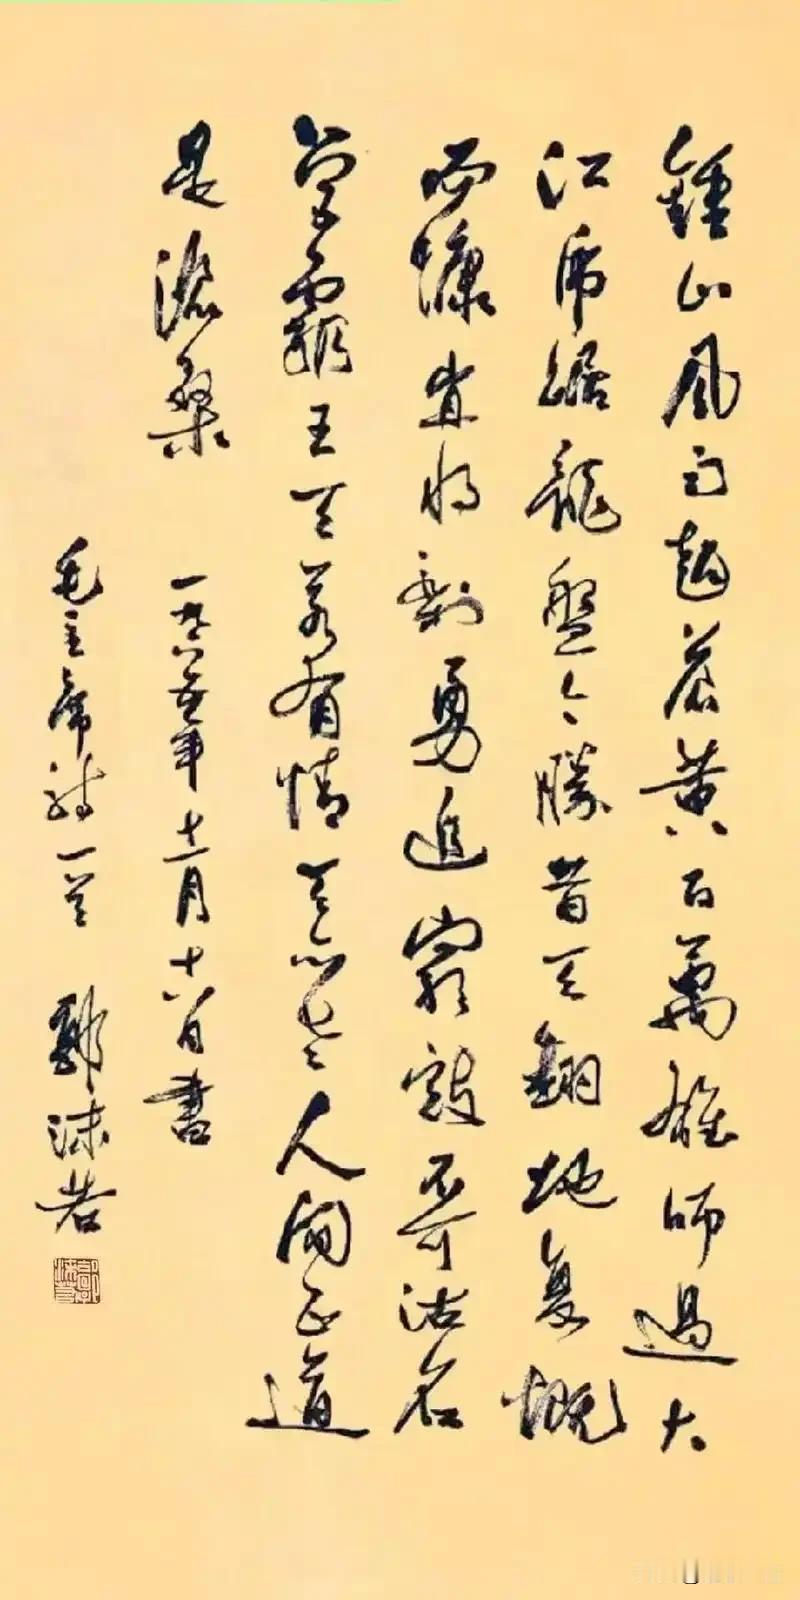 鍾山風雨起蒼黃百萬雄師過大
江虎踞龍盤今勝昔天翻地复慨
而慷宜將剩勇追窮寇不可沽名
學霸王天若有情天亦老人間正道
是滄桑 一九六五年十二月十六日書
毛主席詩一首 郭沫若
郭沫若